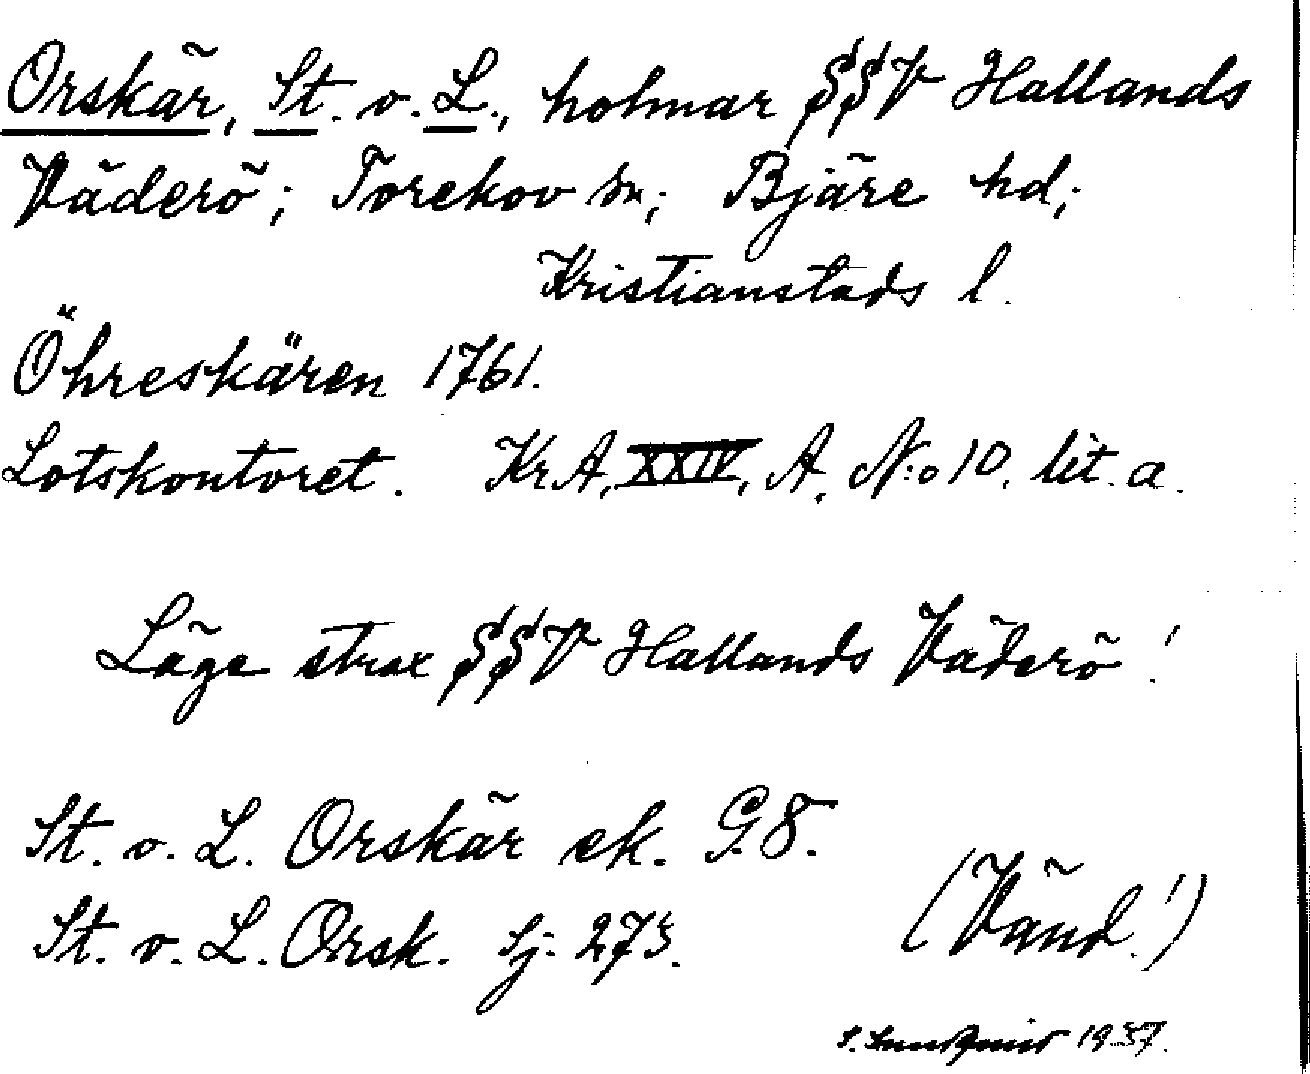 Orskär, St. o. L., holmar SSV Hallands
Väderö; Torekov sn; Bjäre hd;
Kristianstads l.
Öhreskären 1761.
Lotskontoret. Kr.A, XXIV, A, N:o 10, lit. a.
Läge strax SSV Hallands Väderö!
St. o. L. Orskär ek. G.8.
St. o. L. Orsk. Sj. 273.
(Vänd!)
S. 1937.